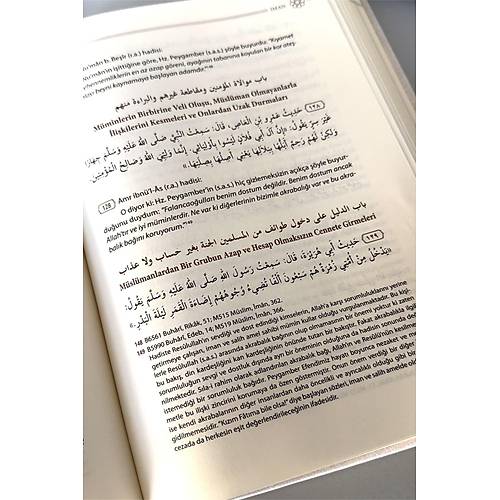 İMAN
Nu'mân b. Beşîr (r.a.) hadisi:
Nu'mân'ın işittiğine göre, Hz. Peygamber (s.a.s.) şöyle buyurdu: "Kıyamet
cehennemliklerin en az azap göreni, ayağının tabanına koyulan bir kor ateş-
beyni kaynamaya başlayan adamdır."
باب موالاة المؤمنين ومقاطعة غيرهم والبراءة منهم
Müminlerin Birbirine Veli Oluşu, Müslüman Olmayanlarla
İlişkilerini Kesmeleri ve Onlardan Uzak Durmaları
١٢٨ حَدِيثُ عَمْرِو بْنِ الْعَاصِ، قَالَ: سَمِعْتُ النَّبِيَّ صَلَّى اللهُ عَلَيْهِ وَسَلَّمَ جِهَارًا
غَيْرَ سِرٍّ يَقُولُ: «إِنَّ آلَ أَبِي فُلَانٍ لَيْسُوا بِأَوْلِيَائِي، إِنَّمَا وَلِيِّيَ اللهُ وَصَالِحُ الْمُؤْمِنِينَ،
وَلَكِنْ لَهُمْ رَحِمٌ أَبُلُّهَا بِبَلَالِهَا يَعْنِي أَصِلُهَا بِصِلَتِهَا.»
128 Amr İbnü'l-Âs (r.a.) hadisi:
O diyor ki: Hz. Peygamber'in (s.a.s.) hiç gizlemeksizin açıkça şöyle buyur-
duğunu duydum: "Falancaoğulları benim dostum değildir. Benim dostum ancak
Allah'tır ve iyi müminlerdir. Ne var ki diğerlerinin bizimle akrabalığı var ve bu akra-
balık bağını koruyorum."
باب الدليل على دخول طوائف من المسلمين الجنة بغير حساب ولا عذاب
Müslümanlardan Bir Grubun Azap ve Hesap Olmaksızın Cennete Girmeleri
١٢٩ حَدِيثُ أَبِي هُرَيْرَةَ، قَالَ: سَمِعْتُ رَسُولَ اللهِ صَلَّى اللهُ عَلَيْهِ وَسَلَّمَ يَقُولُ:
«يَدْخُلُ مِنْ أُمَّتِي زُمْرَةٌ هُمْ سَبْعُونَ أَلْفًا تُضِيءُ وُجُوهُهُمْ إِضَاءَةَ الْقَمَرِ لَيْلَةَ الْبَدْرِ.»
148 B6561 Buhârî, Rikâk, 51; M515 Müslim, Îmân, 362.
149 B5990 Buhârî, Edeb, 14; M519 Müslim, Îmân, 366.
Hadiste Resûlullah'ın sevdiği ve dost edindiği kimselerin, Allah'a karşı sorumluluklarını yerine
getirmeye çalışan, iman ve salih amel sahibi mümin kullar olduğu vurgulanmaktadır. Bu kişi-
lerle Resûlullah (s.a.s.) arasında akrabalık bağının olup olmamasının bir önemi yoktur ki zaten
bu bakış, din kardeşliğini kan kardeşliğinin önünde tutan bir bakıştır. Fakat akrabalıkla ilgili
sorumluluğun sevgi ve dostluk dışında ayrı bir öneminin olduğuna da hadisin sonunda değin-
ilmektedir. Sıla-i rahim olarak adlandırılan akrabalık bağı, Allah'ın ve Resûlü'nün kesilmesini
istemediği bir sorumluluk bağıdır. Peygamber Efendimiz hayatı boyunca nezaket ve
metle bu ilişki zincirini korumaya da özen göstermiştir. Onun önem verdiği bir diğer
ise kendi akrabalarının diğer insanlardan daha öncelikli ve ayrıcalıklı olduğu gibi bir
gidilmemesidir. "Kızım Fâtıma bile olsa!" diye başlayan sözleri, iman ve salih amelde oldu
cezada da herkesin eşit değerlendirileceğinin ifadesidir.